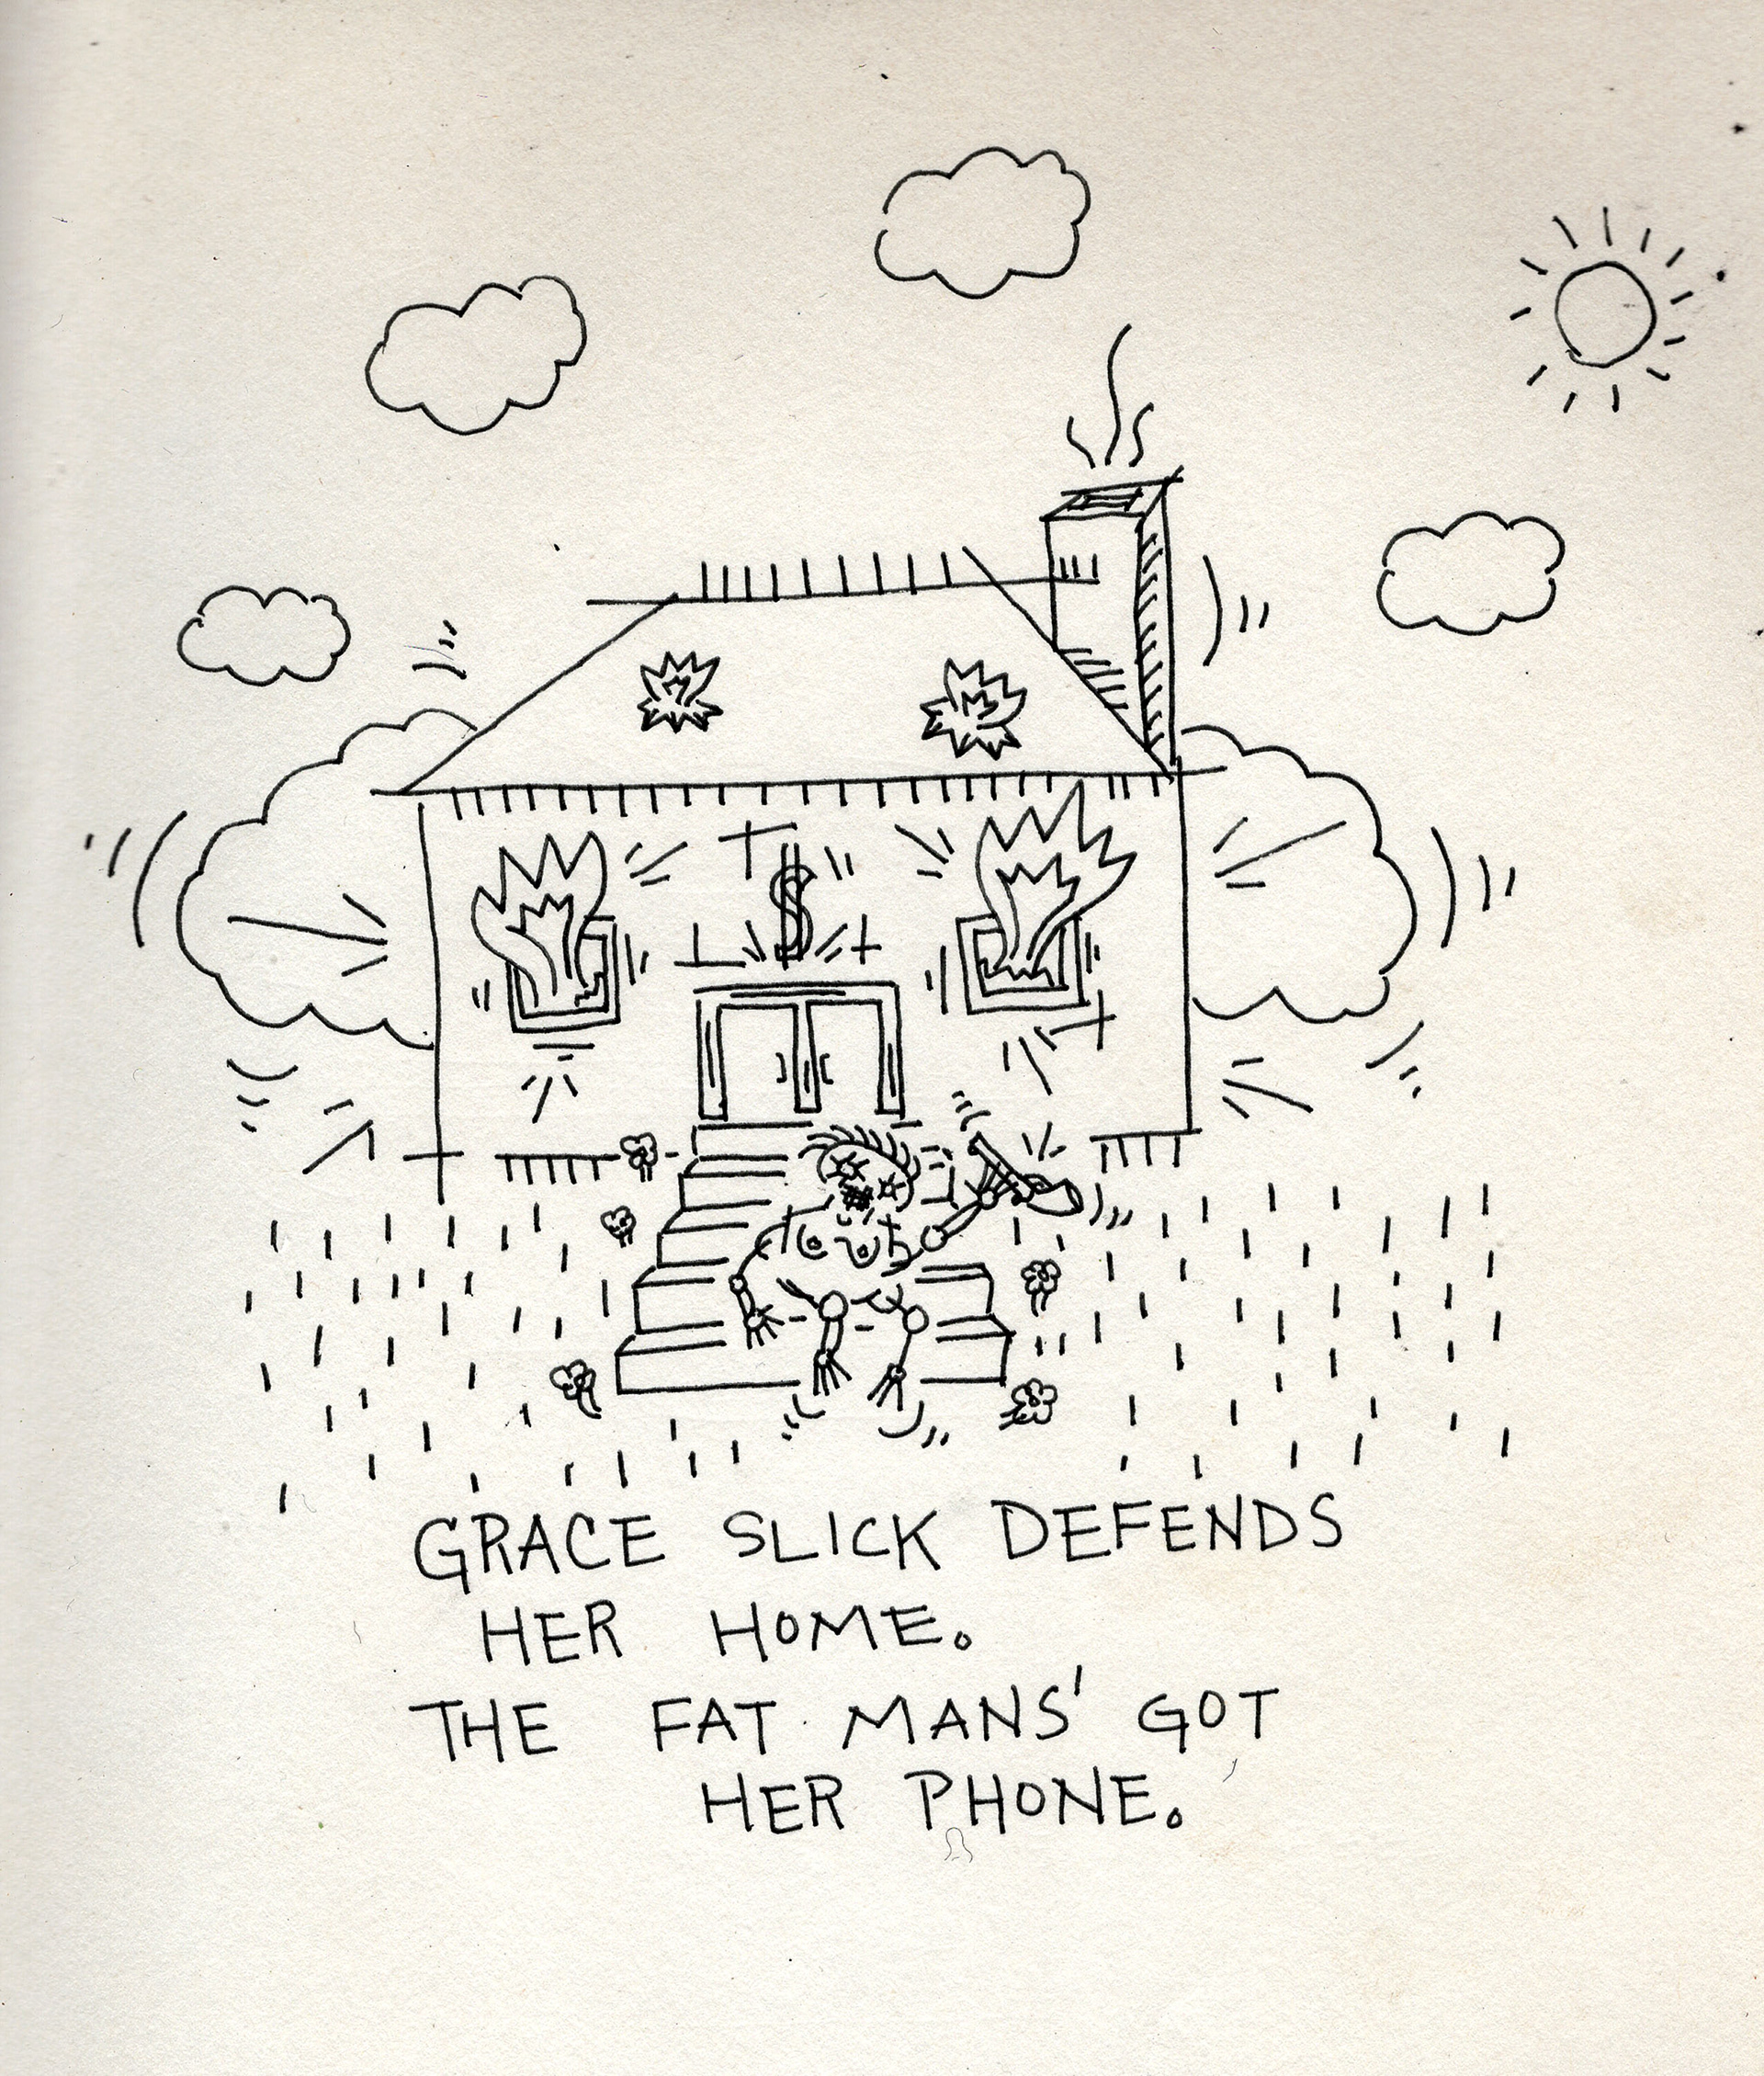 $
GRACE SLICK DEFENDS
HER HOME.
THE FAT MANS' GOT
HER PHONE.